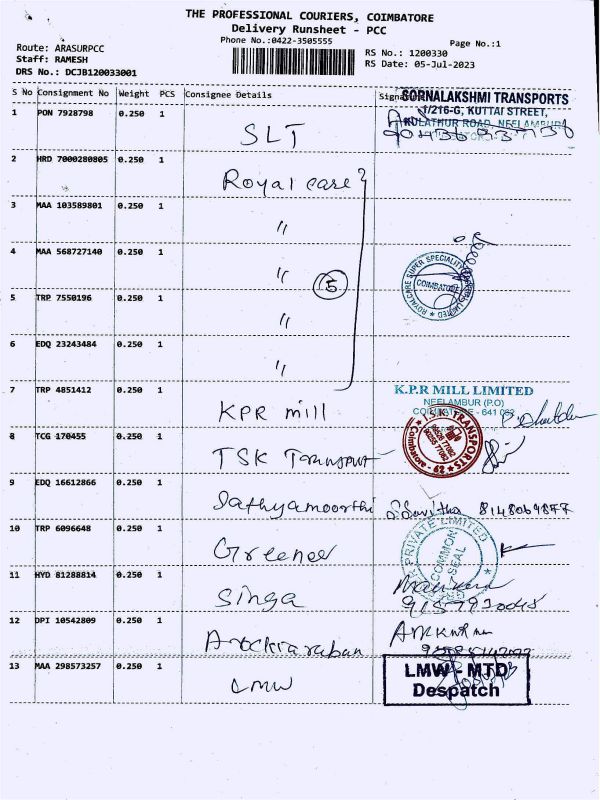 THE PROFESSIONAL COURIERS, COIMBATORE
Delivery Runsheet - PCC
Phone No.:0422-3505555
Page No.:1
Route: ARASURPCC
Staff: RAMESH
DRS No.: DCJB120033001
RS No.: 1200330
RS Date: 05-Jul-2023
S No Consignment No Weight PCS Consignee Details
SORNALAKSHMI TRANSPORTS
1/216-G, KUTTAI STREET,
KULATHUR ROAD, NEELAMBUR
1 PON 7928798 0.250 1 SLT
2 HRD 7000280805 0.250 1 Royal care
3 MAA 103589801 0.250 1 "
4 MAA 568727140 0.250 1 "
5
COIMBATORE
5 TRP 7550196 0.250 1 "
6 EDQ 23243484 0.250 1 "
7 TRP 4851412 0.250 1 KPR mill
K.P.R MILL LIMITED
NEELAMBUR (P.O)
COIMBATORE - 641 062
8 TCG 170455 0.250 1 TSK Transport
T.S.K. TRANSPORTS
Coimbatore - 62
9 EDQ 16612866 0.250 1 Sathyamoorthi Savitha 8148069877
10 TRP 6096648 0.250 1 Greenee
PRIVATE LIMITED
COMMON
SEAL
11 HYD 81288814 0.250 1 Singa
12 DPI 10542809 0.250 1
13 MAA 298573257 0.250 1 LMW
LMW - MTD
Despatch